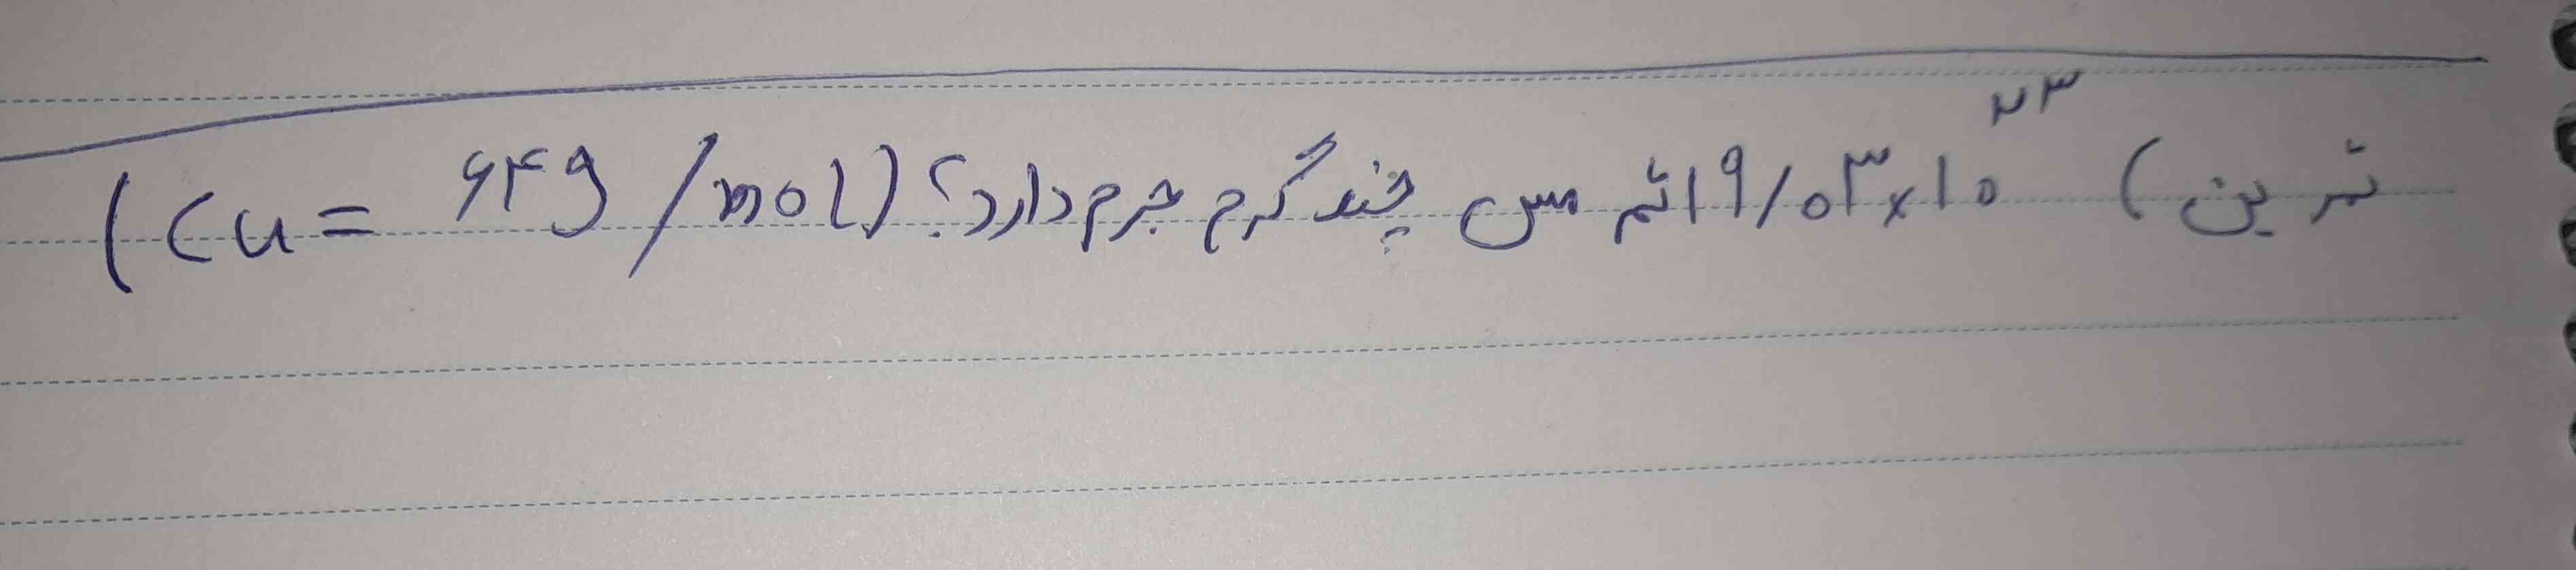 تمرین) ۹/۰۳×۱۰^۲۳ اتم مس چند گرم جرم دارد؟ (Cu = ۶۴g/mol)